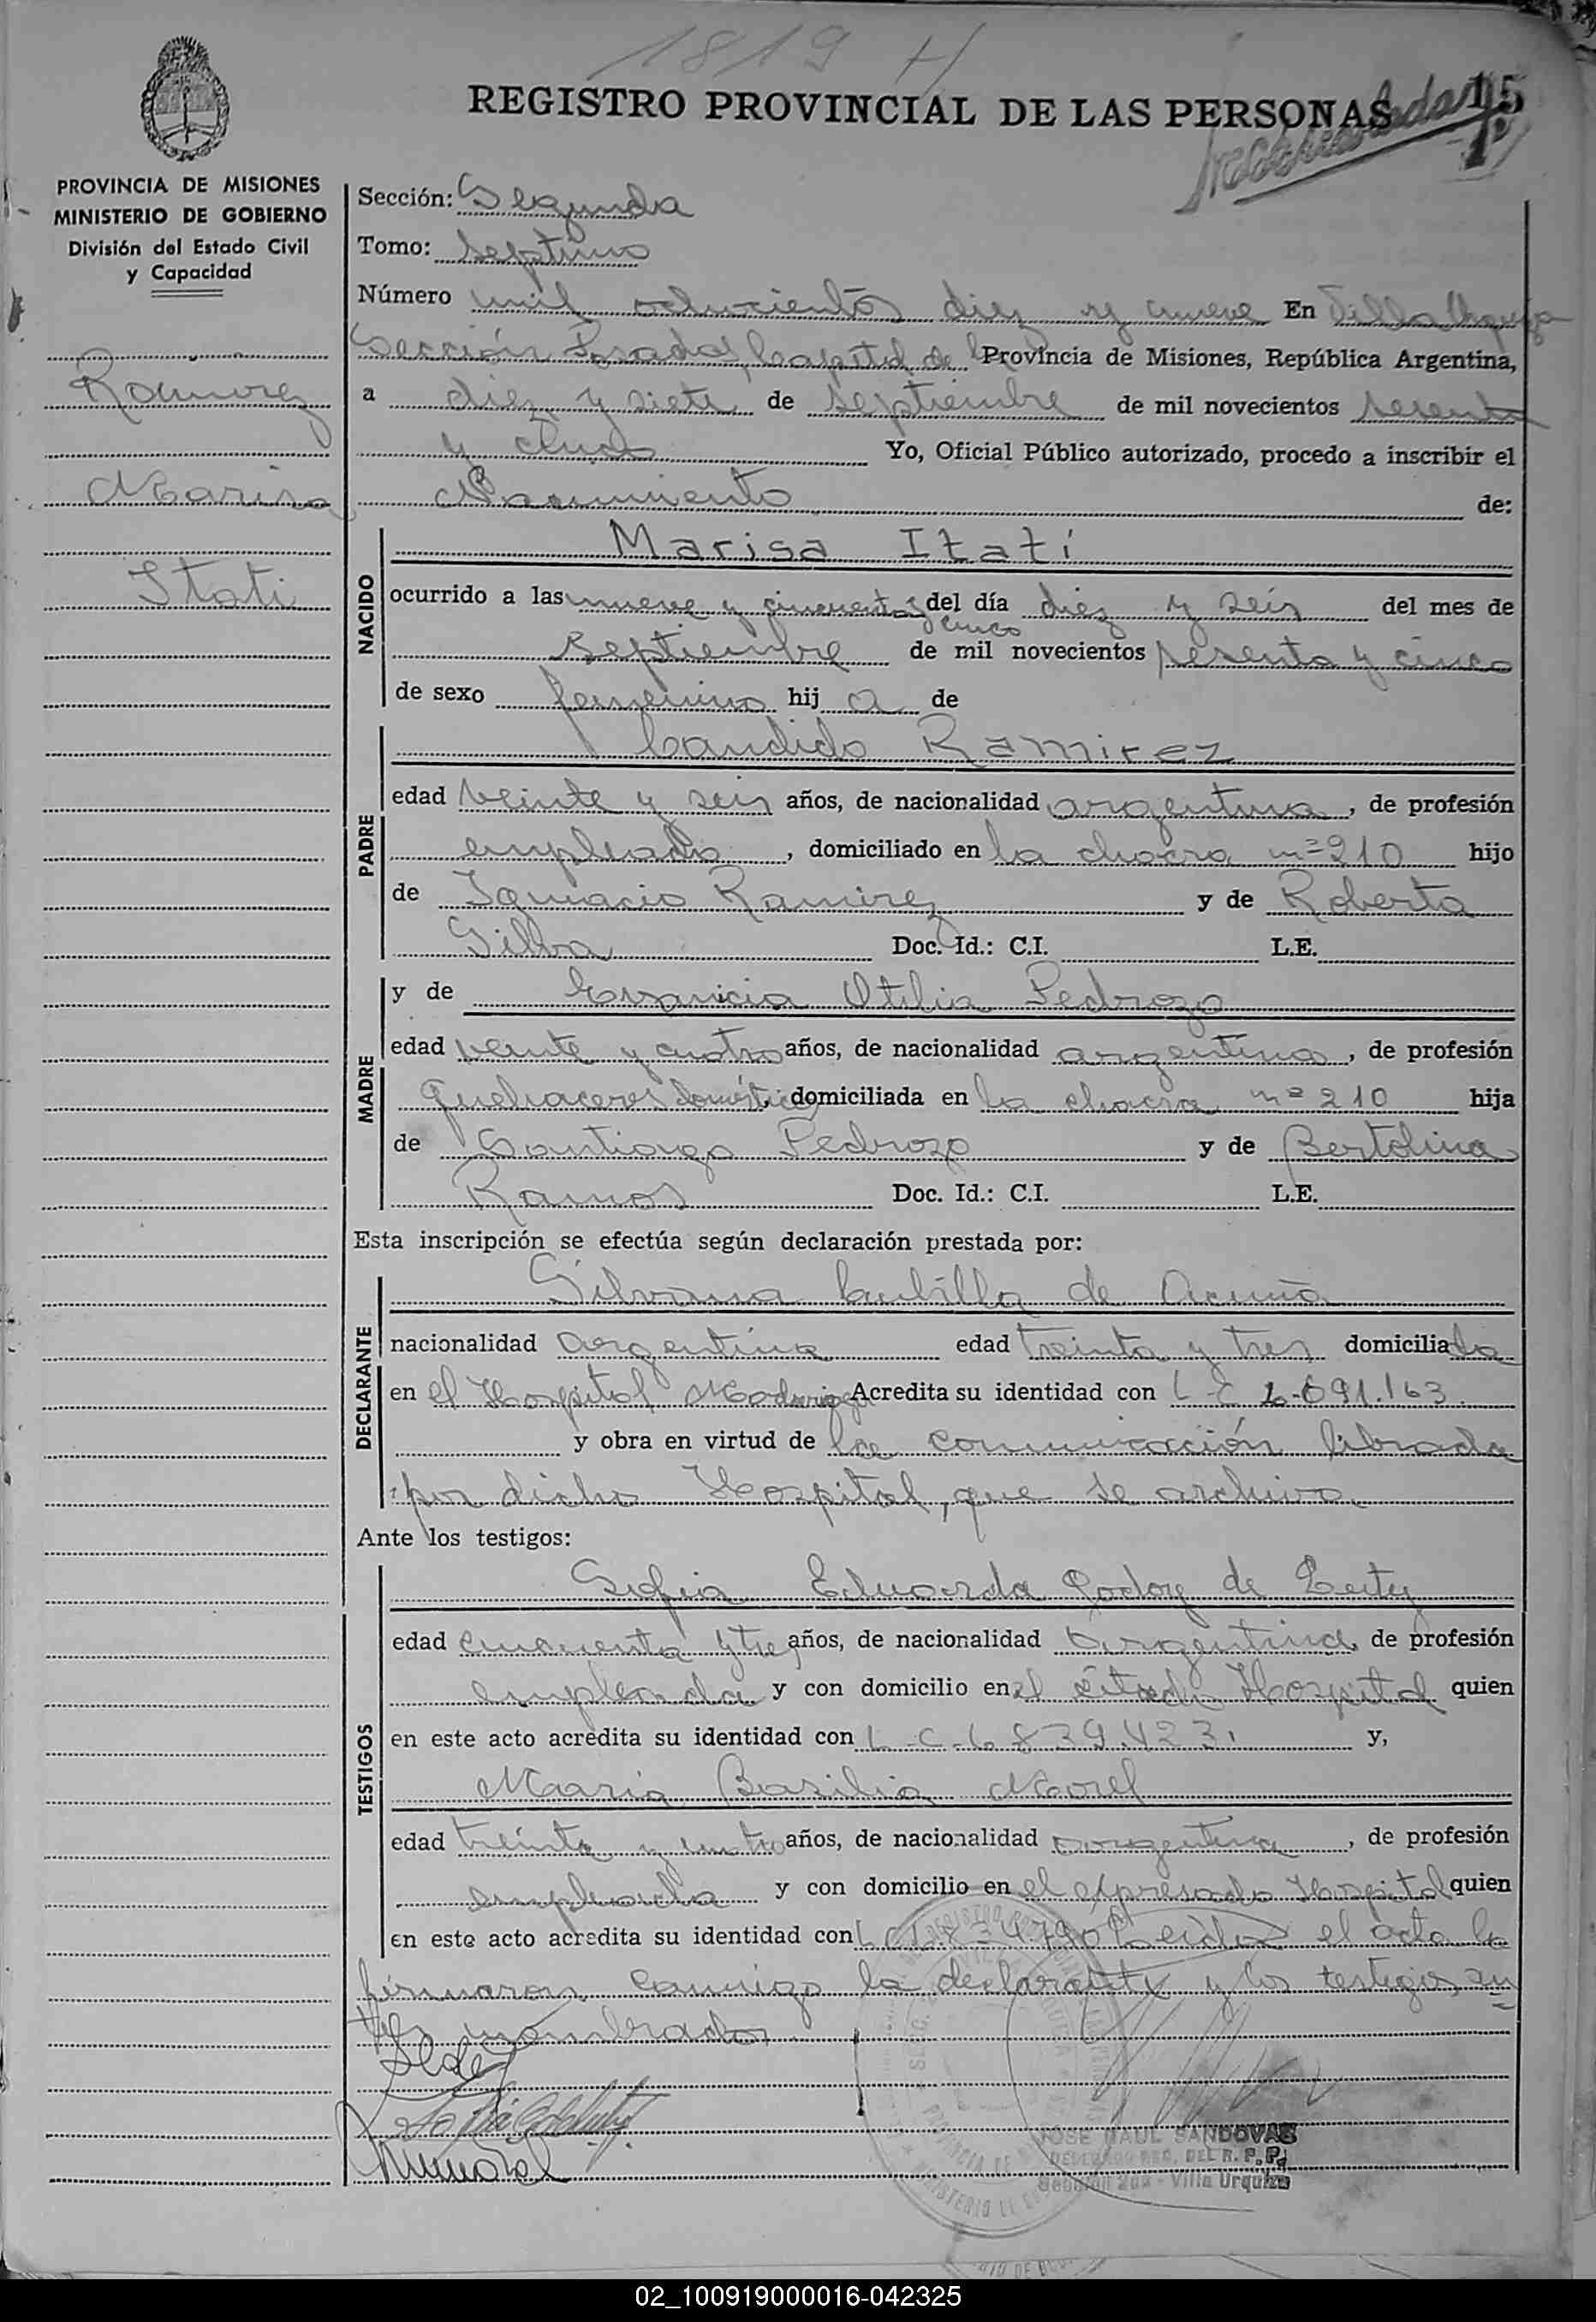 1819 H
REGISTRO PROVINCIAL DE LAS PERSONAS
15
PROVINCIA DE MISIONES
MINISTERIO DE GOBIERNO
División del Estado Civil
y Capacidad
Ramirez
Marisa
Itati
Sección: Segunda
Tomo: Septimo
Número mil ochocientos diez y nueve En Villa Urquiza
Sección Posadas, Capital de la Provincia de Misiones, República Argentina,
a diez y siete de septiembre de mil novecientos sesenta
y cinco Yo, Oficial Público autorizado, procedo a inscribir el
Nacimiento de:
NACIDO
Marisa Itatí
ocurrido a las nueve y cincuenta y cinco del día diez y seis del mes de
septiembre de mil novecientos sesenta y cinco
de sexo femenino hij a de
PADRE
Candido Ramirez
edad veinte y seis años, de nacionalidad argentina, de profesión
empleado, domiciliado en la chacra nº 210 hijo
de Ignacio Ramirez y de Roberta
Silva Doc. Id.: C.I. L.E.
MADRE
y de Otilia Pedrozo
edad veinte y cuatro años, de nacionalidad argentina, de profesión
Quehaceres domésticos domiciliada en la chacra nº 210 hija
de Santiago Pedrozo y de Bertolina
Ramos Doc. Id.: C.I. L.E.
Esta inscripción se efectúa según declaración prestada por:
DECLARANTE
Silvana Cubilla de Acuña
nacionalidad argentina edad treinta y tres domiciliada
en el Hospital Madariaga Acredita su identidad con L-C 6.691.163
y obra en virtud de la comunicación librada
por dicho Hospital, que se archiva.
Ante los testigos:
TESTIGOS
Sofia Eduarda Godoy de
edad cincuenta y tres años, de nacionalidad argentina de profesión
empleada y con domicilio en el citado Hospital quien
en este acto acredita su identidad con L-C-6839.423. y,
María Basilia Morel
edad treinta y cuatro años, de nacionalidad argentina, de profesión
empleada y con domicilio en el expresado Hospital quien
en este acto acredita su identidad con Leida el acta la
firmaron conmigo la declarante y los testigos an
tes nombrados
JOSE RAUL SANDOVAL
DEL R. P. P.
Sección 2da - Villa Urquiza
02_100919000016-042325